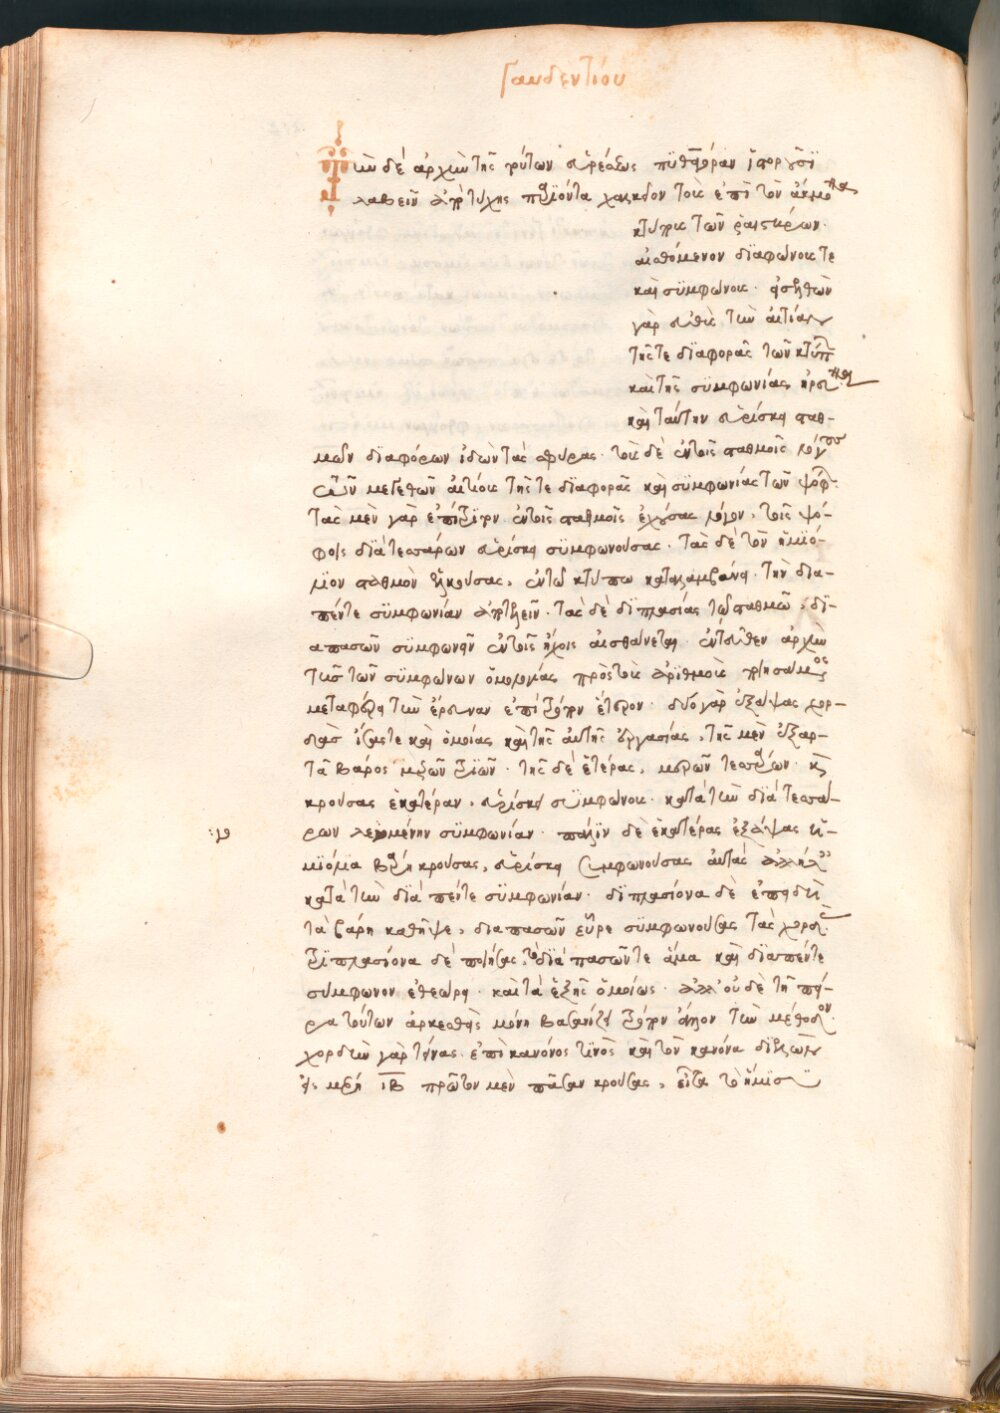 Γαυδεντίου
Τὴν δὲ ἀρχὴν τῆς τούτων εὑρέσεως πυθαγόραν ἱστοροῦσι
λαβεῖν ἀπὸ τύχης παριόντα χαλκεῖον τοὺς ἐπὶ τὸν ἄκμονα
κτύπους τῶν ῥαιστήρων
αἰσθόμενον διαφώνους τε
καὶ συμφώνους. εἰσελθὼν
γὰρ εὐθὺς τὴν αἰτίαν
τῆς τε διαφορᾶς τῶν κτύπων
καὶ τῆς συμφωνίας ἠρεύνα
καὶ ταύτην εὑρίσκει σταθ-
μῶν διαφόρων ἰδὼν τὰς σφύρας. τοὺς δὲ ἐν τοῖς σταθμοῖς λόγους
τῶν μεγεθῶν αἰτίους τῆς τε διαφορᾶς καὶ συμφωνίας τῶν ψόφων.
τὰς μὲν γὰρ ἐπίτριτον ἐν τοῖς σταθμοῖς ἐχούσας λόγον, τοῖς ψό-
φοις διὰ τεσσάρων εὑρίσκει συμφωνούσας. τὰς δὲ τὸν ἡμιό-
λιον σταθμὸν ἑλκούσας, ἐν τῷ κτύπῳ καταλαμβάνει τὴν δια-
πέντε συμφωνίαν ἀποτελεῖν. τὰς δὲ διπλασίας τῷ σταθμῷ, δι-
απασῶν συμφωνεῖν ἐν τοῖς ἤχοις αἰσθάνεται. ἐντεῦθεν ἀρχὴν
τῆς τῶν συμφώνων ὁμολογίας πρὸς τοὺς ἀριθμοὺς ποιησάμενος
μεταφέρει τὴν ἔρευναν ἐπίτρόπον ἕτερον. δύο γὰρ ἐξάψας χορ-
δὰς ἴσας τε καὶ ὁμοίας καὶ τῆς αὐτῆς ἐργασίας, τῆς μὲν ἐξαρ-
τᾷ βάρος μερῶν τριῶν. τῆς δὲ ἑτέρας, μερῶν τεσσάρων. καὶ
κρούσας ἑκατέραν, εὑρίσκει συμφώνους κατὰ τὴν διὰ τεσσά-
ρων λεγομένην συμφωνίαν. πάλιν δὲ ἑκατέρας ἐξάψας ἡ-
μιόλια βάρη κρούσας, εὑρίσκει συμφωνούσας αὐτὰς ἀλλήλαις
κατὰ τὴν διὰ πέντε συμφωνίαν. διπλασίονα δὲ ἐπειδὴ
τὰ βάρη καθῆψε, διαπασῶν εὗρε συμφωνούσας τὰς χορδάς.
τριπλασίονα δὲ ποιήσας, τὸ διὰ πασῶν τε ἅμα καὶ διαπέντε
σύμφωνον ἐθεώρει. καὶ τὰ ἑξῆς ὁμοίως. ἀλλ' οὐδὲ τῇ πεί-
ρᾳ τούτων ἀρκεσθεὶς μόνῃ βασανίζει τρόπον ἄλλον τὴν μέθοδον.
χορδὴν γὰρ τείνας ἐπὶ κανόνος τινὸς καὶ τὸν κανόνα διελὼν
εἰς μέρη ιβ πρῶτον μὲν πᾶσαν κρούσας, εἶτα τὸ ἥμισυ